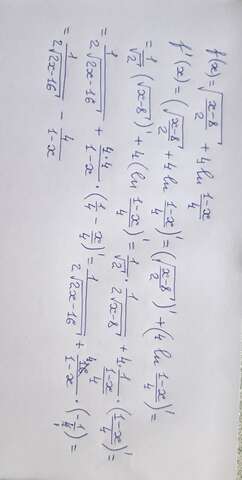 f(x) = √((x-8)/2) + 4 ln (1-x)/4
f'(x) = (√((x-8)/2) + 4 ln (1-x)/4)' = (√((x-8)/2))' + (4 ln (1-x)/4)' =
= 1/√2 (√(x-8))' + 4 (ln (1-x)/4)' = 1/√2 · 1/(2√(x-8)) + 4 · 1/((1-x)/4) · ((1-x)/4)' =
= 1/(2√(2x-16)) + (4·4)/(1-x) · (1/4 - x/4)' = 1/(2√(2x-16)) + 16/(1-x) · (-1/4) =
= 1/(2√(2x-16)) - 4/(1-x)